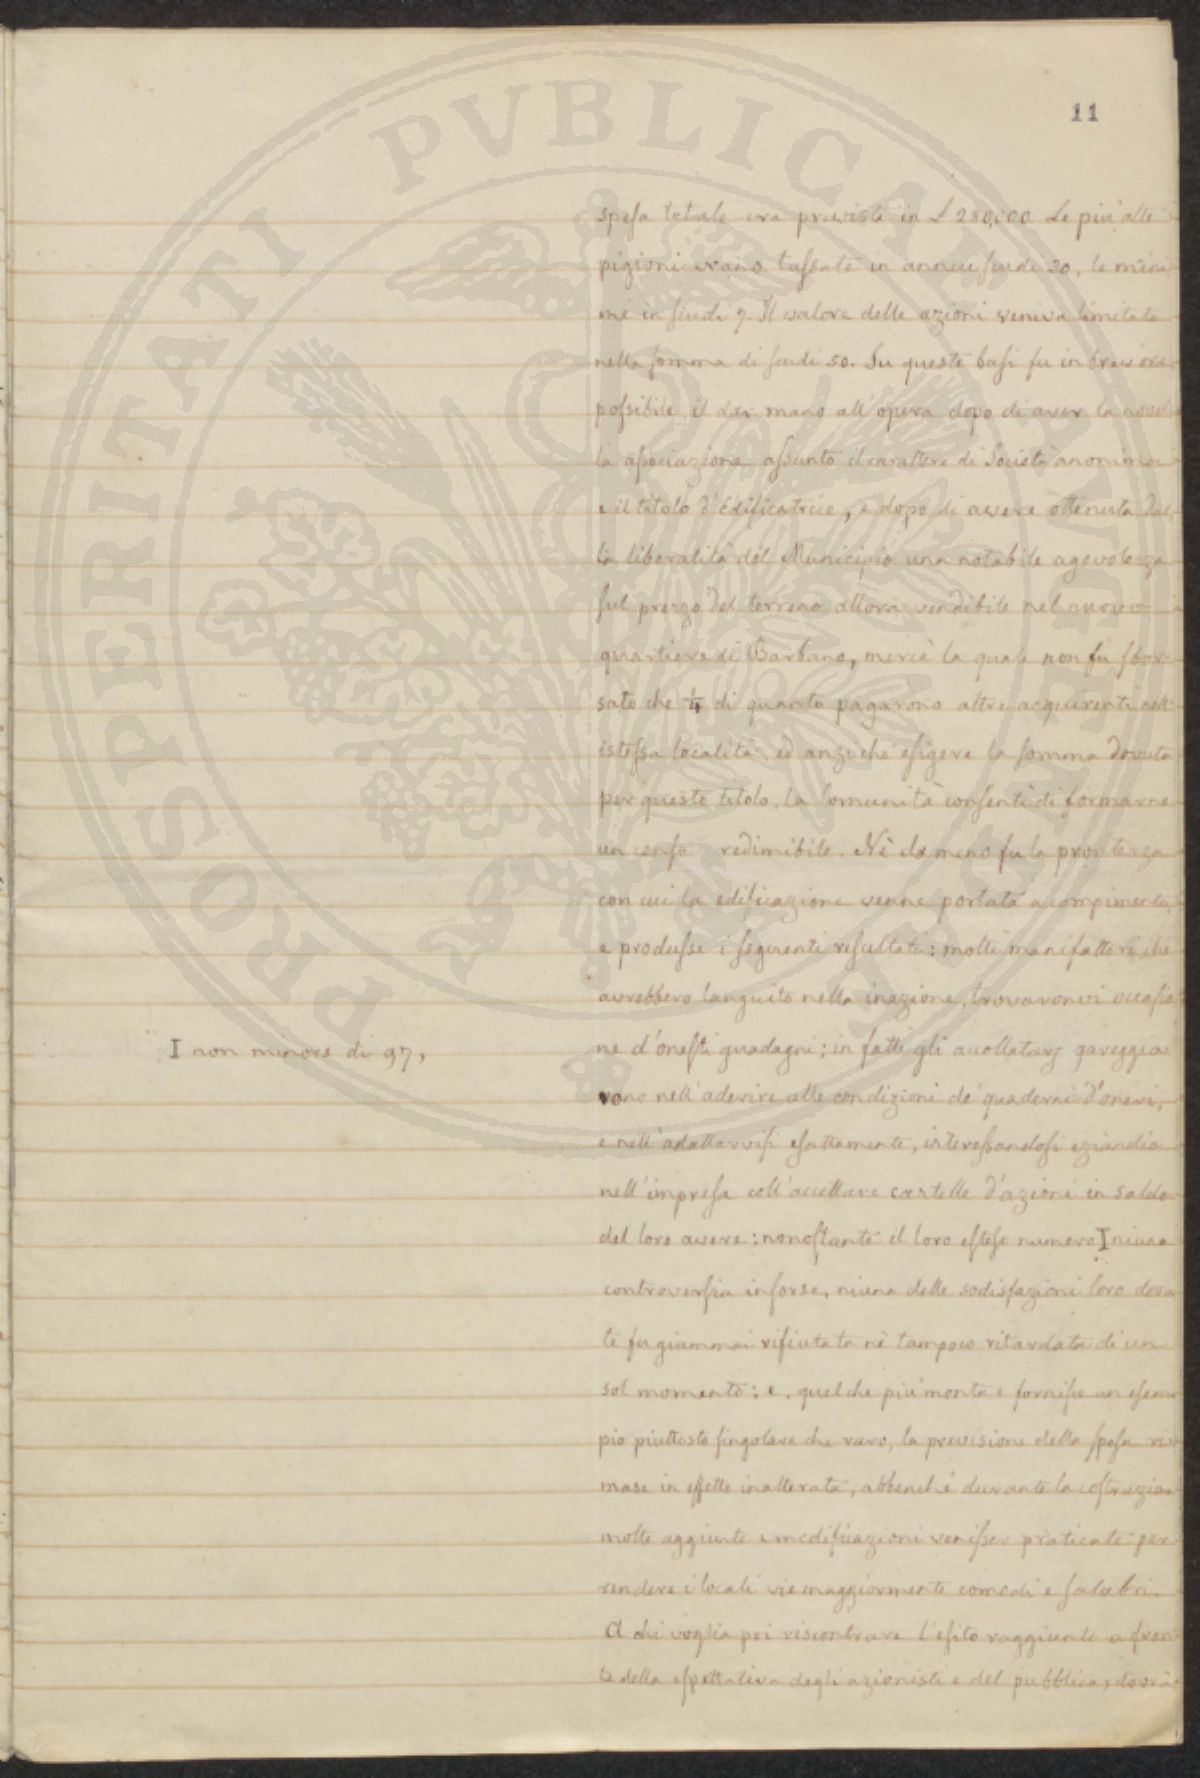 11
spesa totale era prevista in £ 280,000. Le più alte
pigioni erano tassate in annui scudi 30, le mini
me in scudi 7. Il valore delle azioni veniva limitato
nella somma di scudi 50. Su queste basi fu in brev'ora
possibile il dar mano all'opera dopo di aver la novel
la associazione assunto il carattere di Società anonima
e il titolo d'Edificatrice, e dopo di avere ottenuta dal
la liberalità del Municipio una notabile agevolezza
sul prezzo del terreno allora vendibile nel nuovo
quartiere di Barbano, mercè la quale non fu sbor
sato che 1/4 di quanto pagarono altri acquirenti nell'
istessa località: ed anzichè esigere la somma dovuta
per questo titolo, la Comunità consentì di formarne
un censo redimibile. Nè da meno fu la prontezza
con cui la edificazione venne portata a compimento,
e produsse i seguenti resultati: molti manifattori che
avrebbero languito nella inazione, trovaronvi occasio
ne d'onesti guadagni; in fatti gli accollatarj gareggia
I non minore di 97,
rono nell'aderire alle condizioni de' quaderni d'oneri,
e nell'adattarvisi esattamente, interessandosi eziandio
nell'impresa coll'accettare cartelle d'azioni in saldo
del loro avere: nonostante il loro esteso numero I niuna
controversia insorse, niuna delle sodisfazioni loro dovu
te fu giammai rifiutata nè tampoco ritardata di un
sol momento; e, quel che più monta e fornisce un esem
pio piuttosto singolare che raro, la previsione della spesa ri
mase in effetto inalterata, abbenchè durante la costruzione
molte aggiunte e modificazioni venisser praticate per
rendere i locali vie maggiormente comodi e salubri.
A chi voglia poi riscontrare l'esito raggiunto a fron
te della espettativa degli azionisti e del pubblico, dovrà
PROSPERITATI PVBLICAE